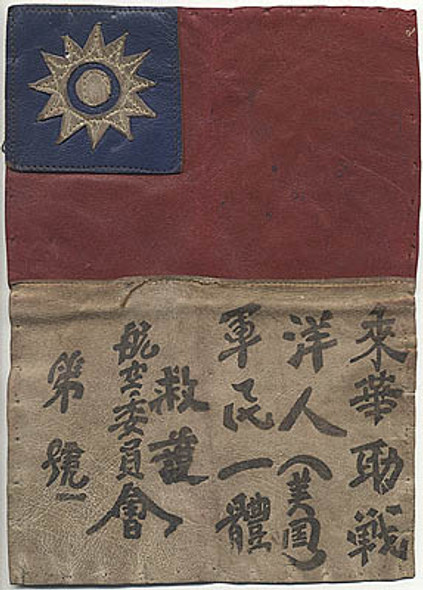 來華助戰
洋人(美国)
軍民一體
救護
航空委員會
第 號